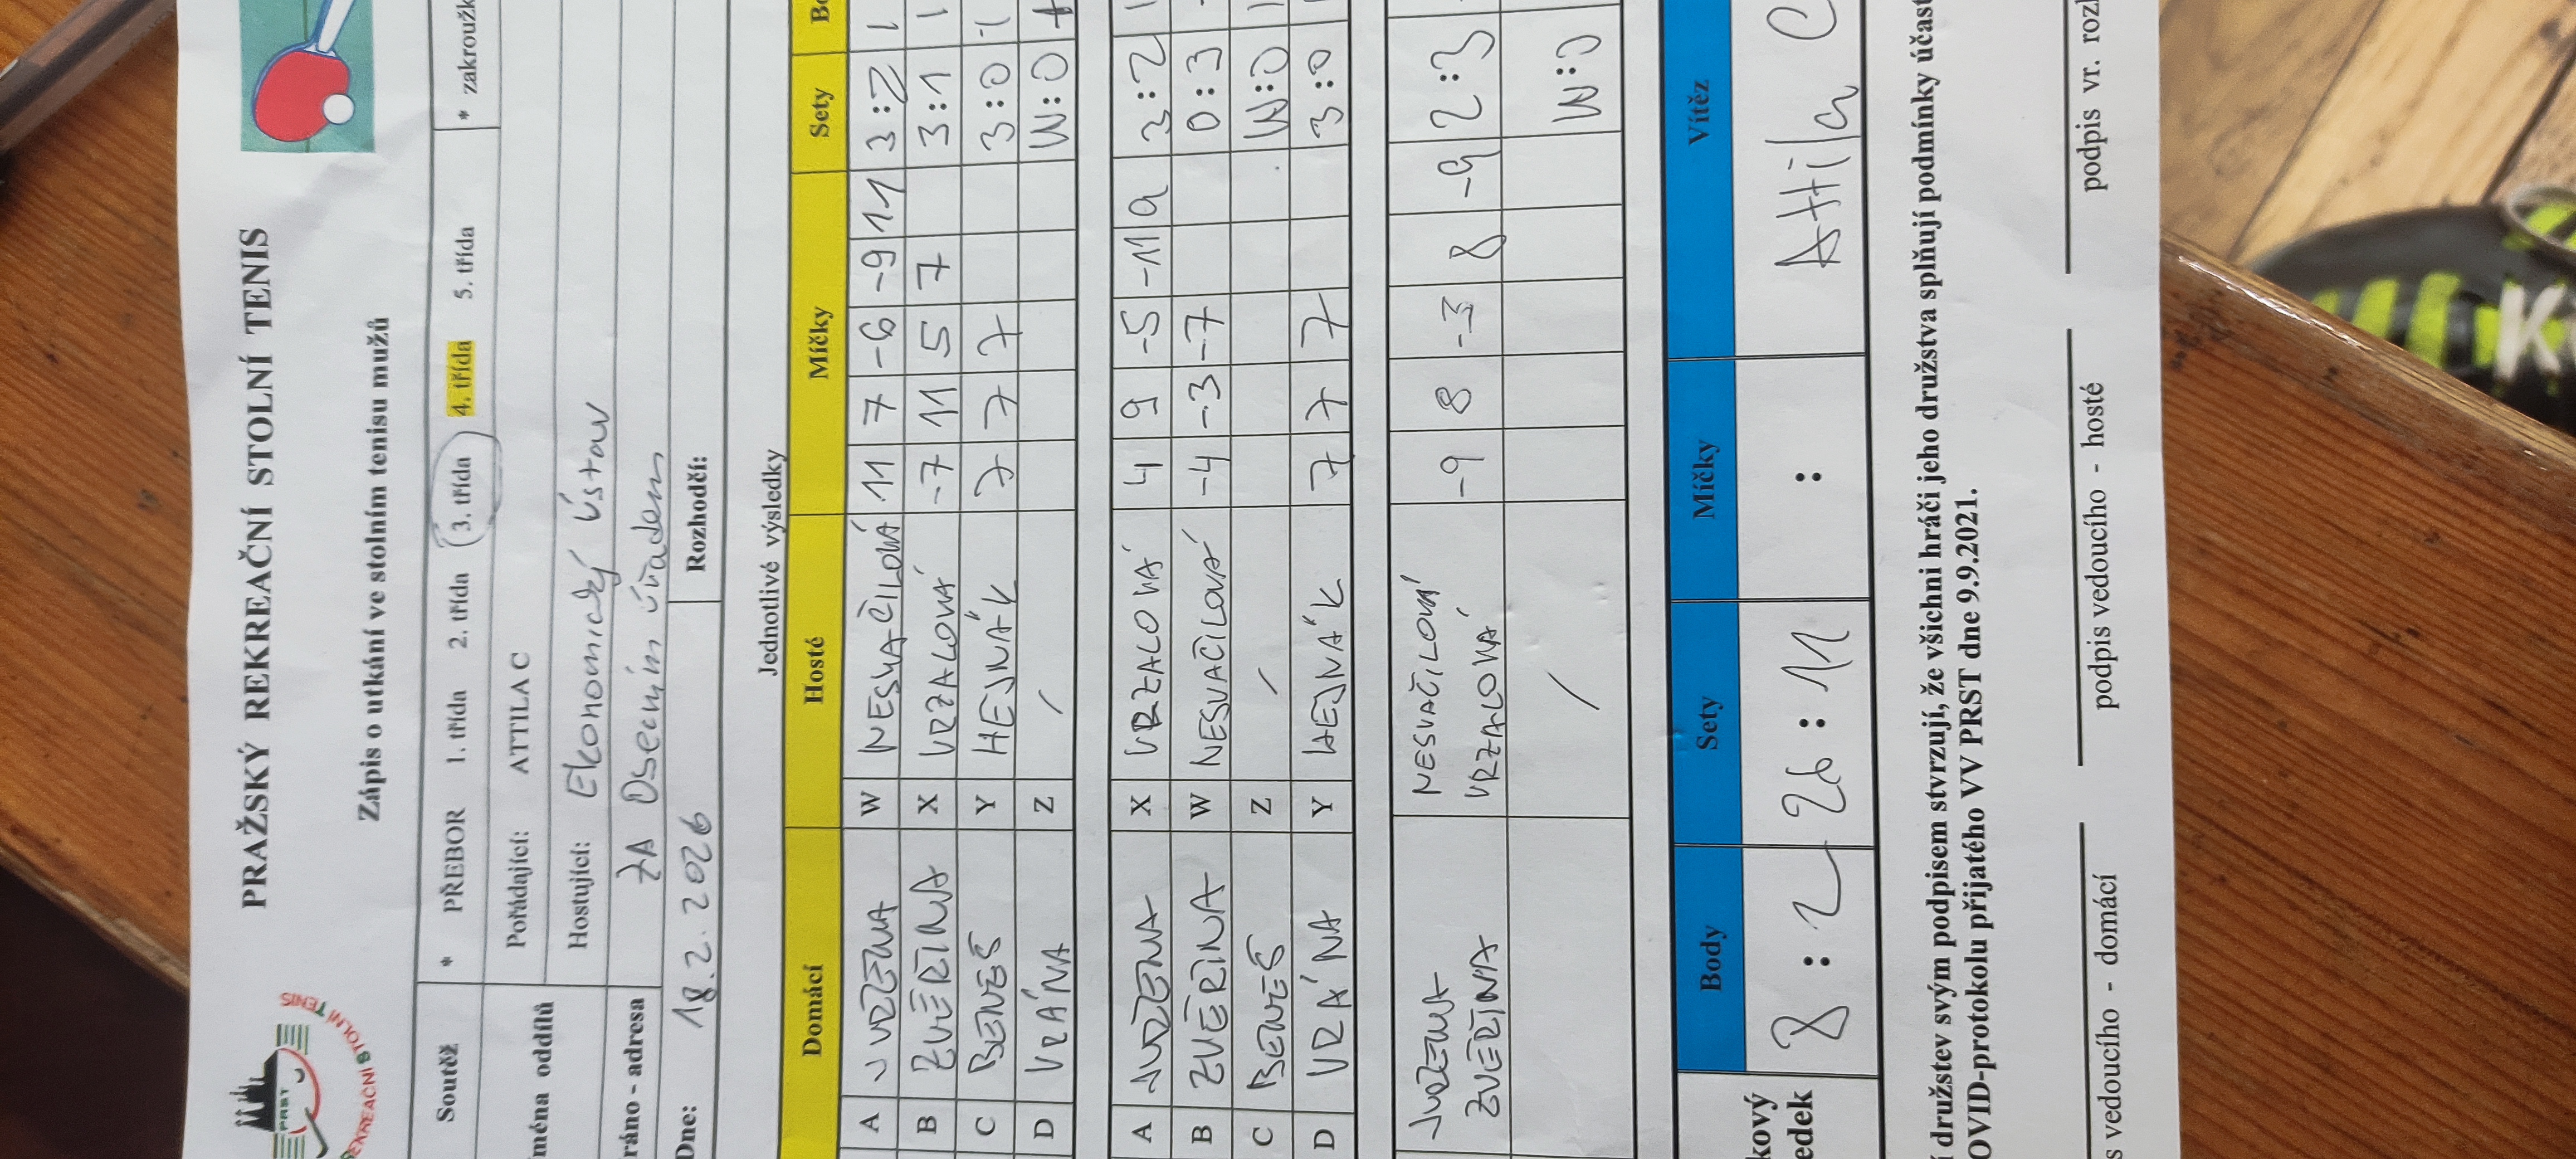 PRAŽSKÝ REKREAČNÍ STOLNÍ TENIS
Zápis o utkání ve stolním tenisu mužů
PRST
REKREAČNÍ STOLNÍ TENIS
Soutěž * PŘEBOR 1. třída 2. třída 3. třída 4. třída 5. třída * zakroužk
Pořádající: ATTILA C
ména oddílů
Hostující: Ekonomický ústav
ráno - adresa ZA Osecním úřadem
Dne: 18.2.2026 Rozhodčí:
Jednotlivé výsledky
Domácí Hosté Míčky Sety Bo
A JUDZENA W NESVAČILOVÁ 11 7 -6 -9 11 3:2 1
B ZVĚŘINA X VRZALOVÁ -7 11 5 7 3:1 1
C BENEŠ Y HEJNÁK 7 7 7 3:0 1
D VRÁNA Z / W:0
A X VRZALOVÁ 4 9 -5 -11 9 3:2
B ZVĚŘINA W NESVAČILOVÁ -4 -3 -7 0:3
C BENEŠ Z / W:0
D VRÁNA Y HEJNÁK 7 7 7 3:0
NESVAČILOVÁ -9 8 -3 8 -9 2:3
ZVĚŘINA VRZALOVÁ
/ W:0
kový Body Sety Míčky Vítěz
edek 8:2 26:11 : Attila C
í družstev svým podpisem stvrzují, že všichni hráči jeho družstva splňují podmínky účast
OVID-protokolu přijatého VV PRST dne 9.9.2021.
s vedoucího - domácí podpis vedoucího - hosté podpis vr. rozh